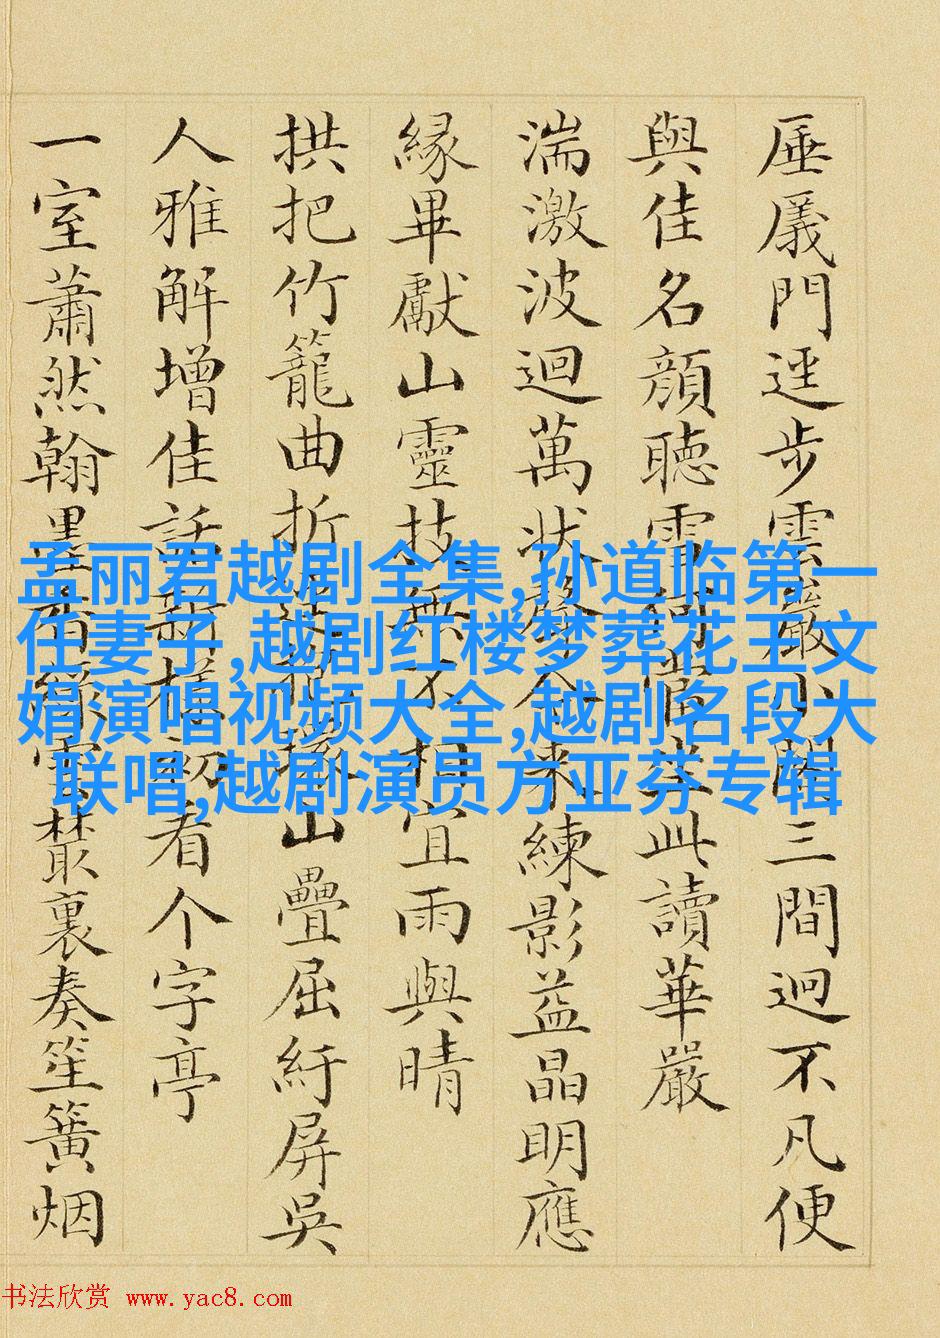 厜㕒門逕步雲巖小閣三間迥不凡便
與佳名顏聽雪此讀華嚴
湍激波迴萬狀來練影益晶明應
緣畢獻山靈技無不相宜雨與晴
拱把竹籠曲折山疊屈紆屏吳
人雅解增佳話新樣初看个字亭
一室蕭然翰墨香雲叢裏奏笙簧烟
孟丽君越剧全集,孙道临第一
任妻子,越剧红楼梦葬花王文
娟演唱视频大全,越剧名段大
联唱,越剧演员方亚芬专辑
书法欣赏 www.yac8.com